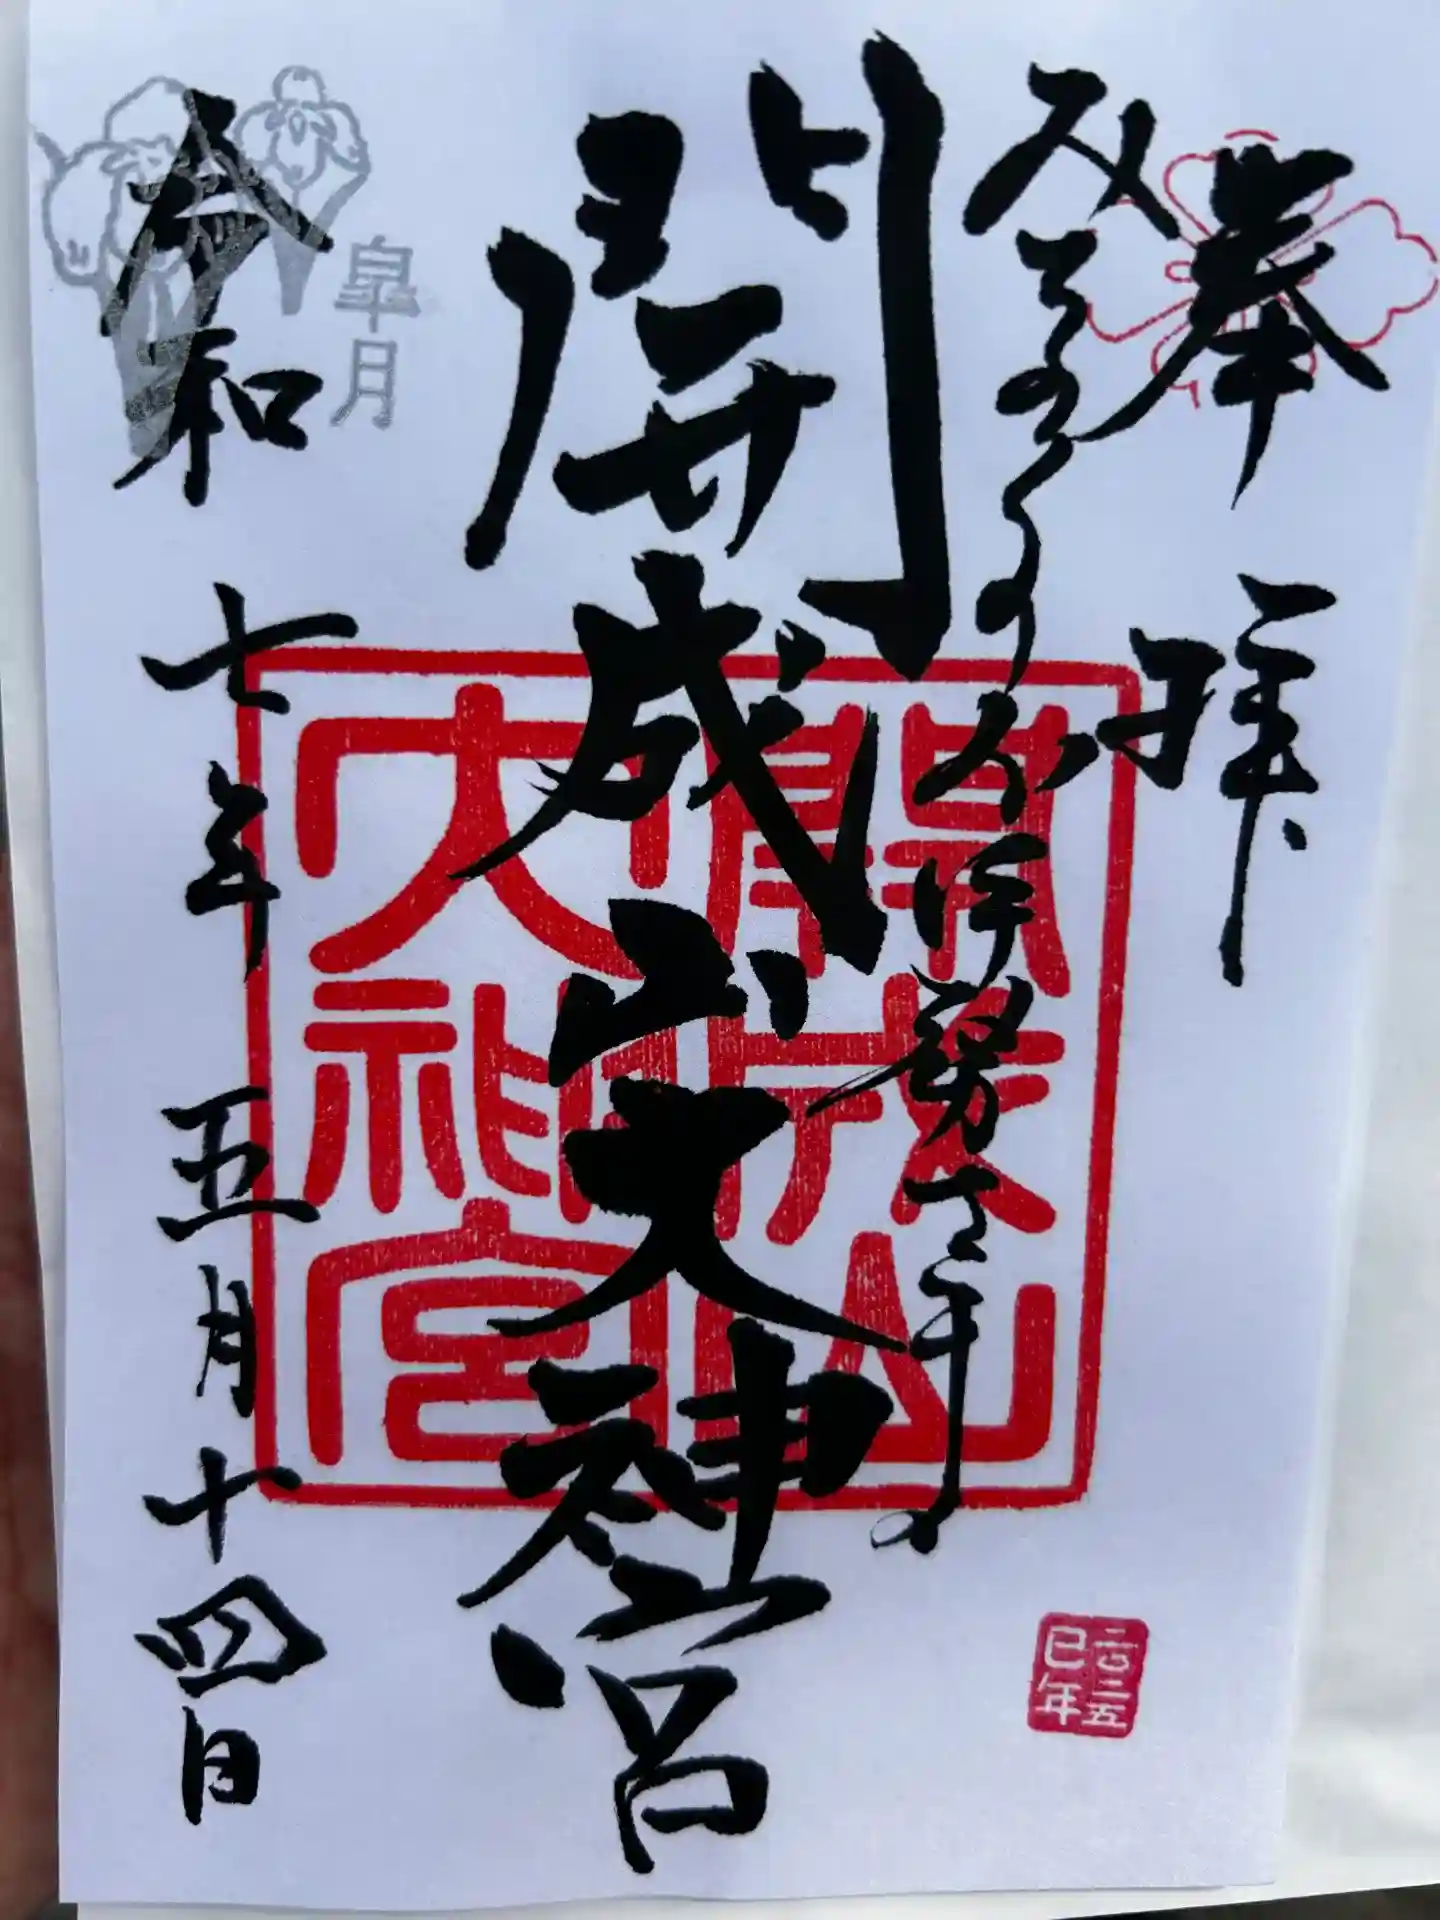 奉拝
みちのくのお伊勢さま
開成山大神宮
開成山
大神宮
皐月
令和七年五月十四日
二〇二五
巳年